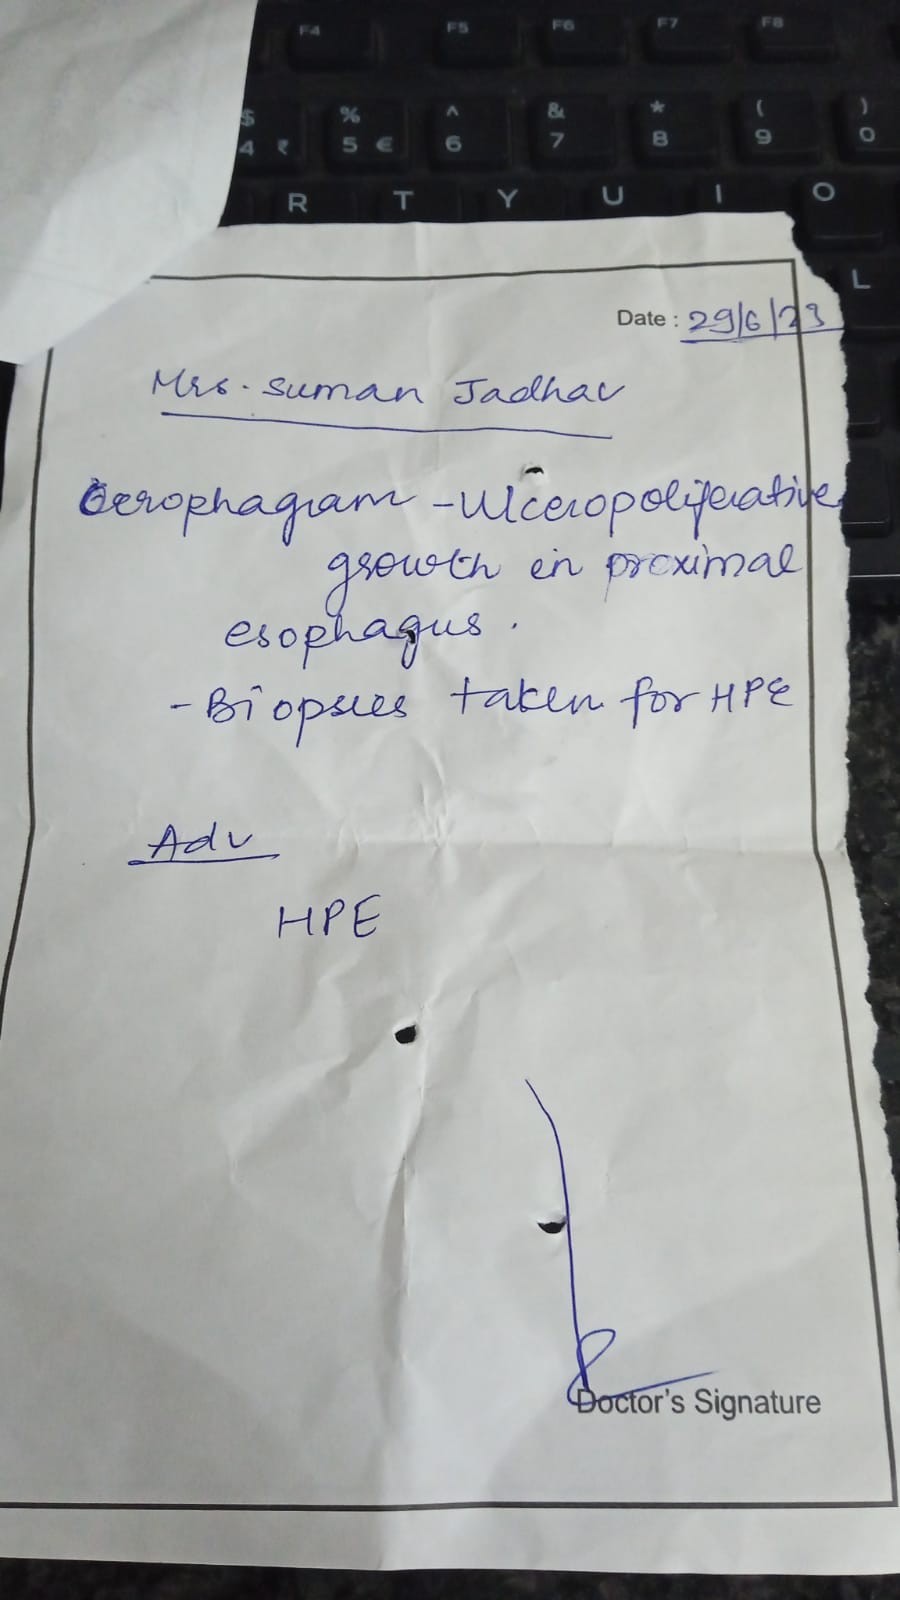 F4 F5 F6 F7 F8
$ % ^ & * ( )
4 ₹ 5 € 6 7 8 9 0
R T Y U I O
L
Date : 29/6/23
Mrs. Suman Jadhav
Oesophagram - Ulceropoliferative
growth in proximal
esophagus.
- Biopsies taken for HPE
Adv
HPE
Doctor's Signature